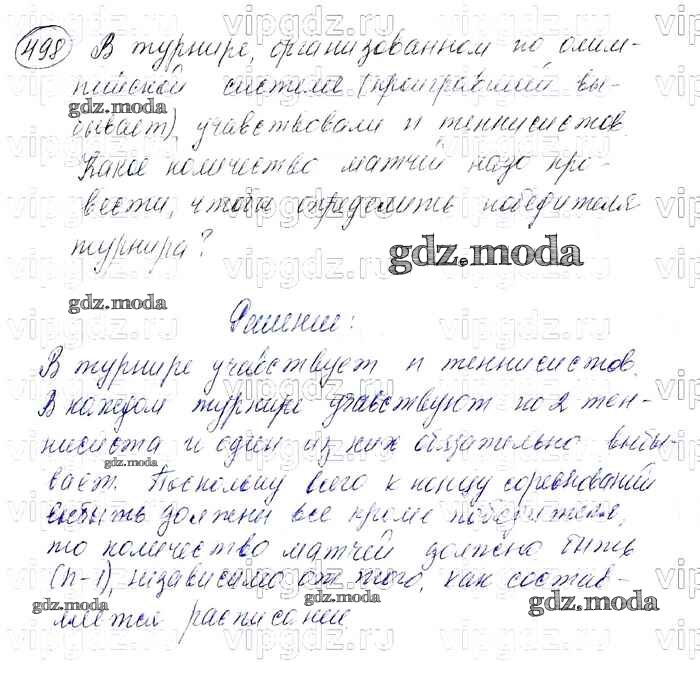 498 В турнире, организованном по олим-
пийской системе (проигравший вы-
бывает), учавствовали n теннисистов
Какое количество матчей надо про-
вести, чтобы определить победителя
турнира?
Решение:
В турнире учавствует n теннисистов.
В каждом турнире учавствуют по 2 тен-
нисиста и один из них обязательно выбы-
вает. Поскольку всего к концу соревнований
выбыть должны все кроме победителя,
то количество матчей должно быть
(n-1), независимо от того, как состав-
ляется расписание
gdz.moda
gdz.moda
gdz.moda
gdz.moda
gdz.moda
gdz.moda
gdz.moda
vipgdz.ru